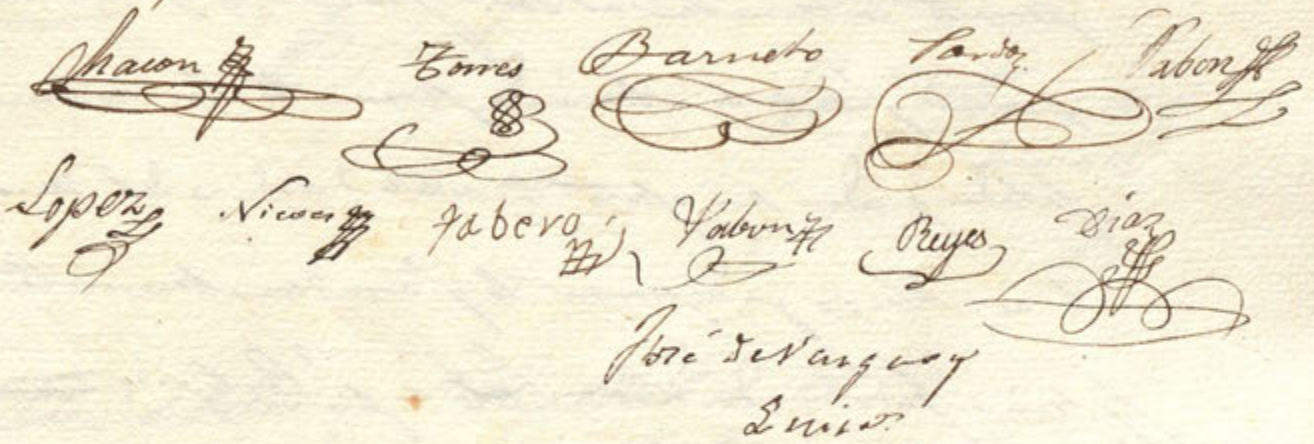 Chacon Torres Barneto Pabon
Lopez Nieves Tabero Pabon Reyes Diaz
José de Vargas y